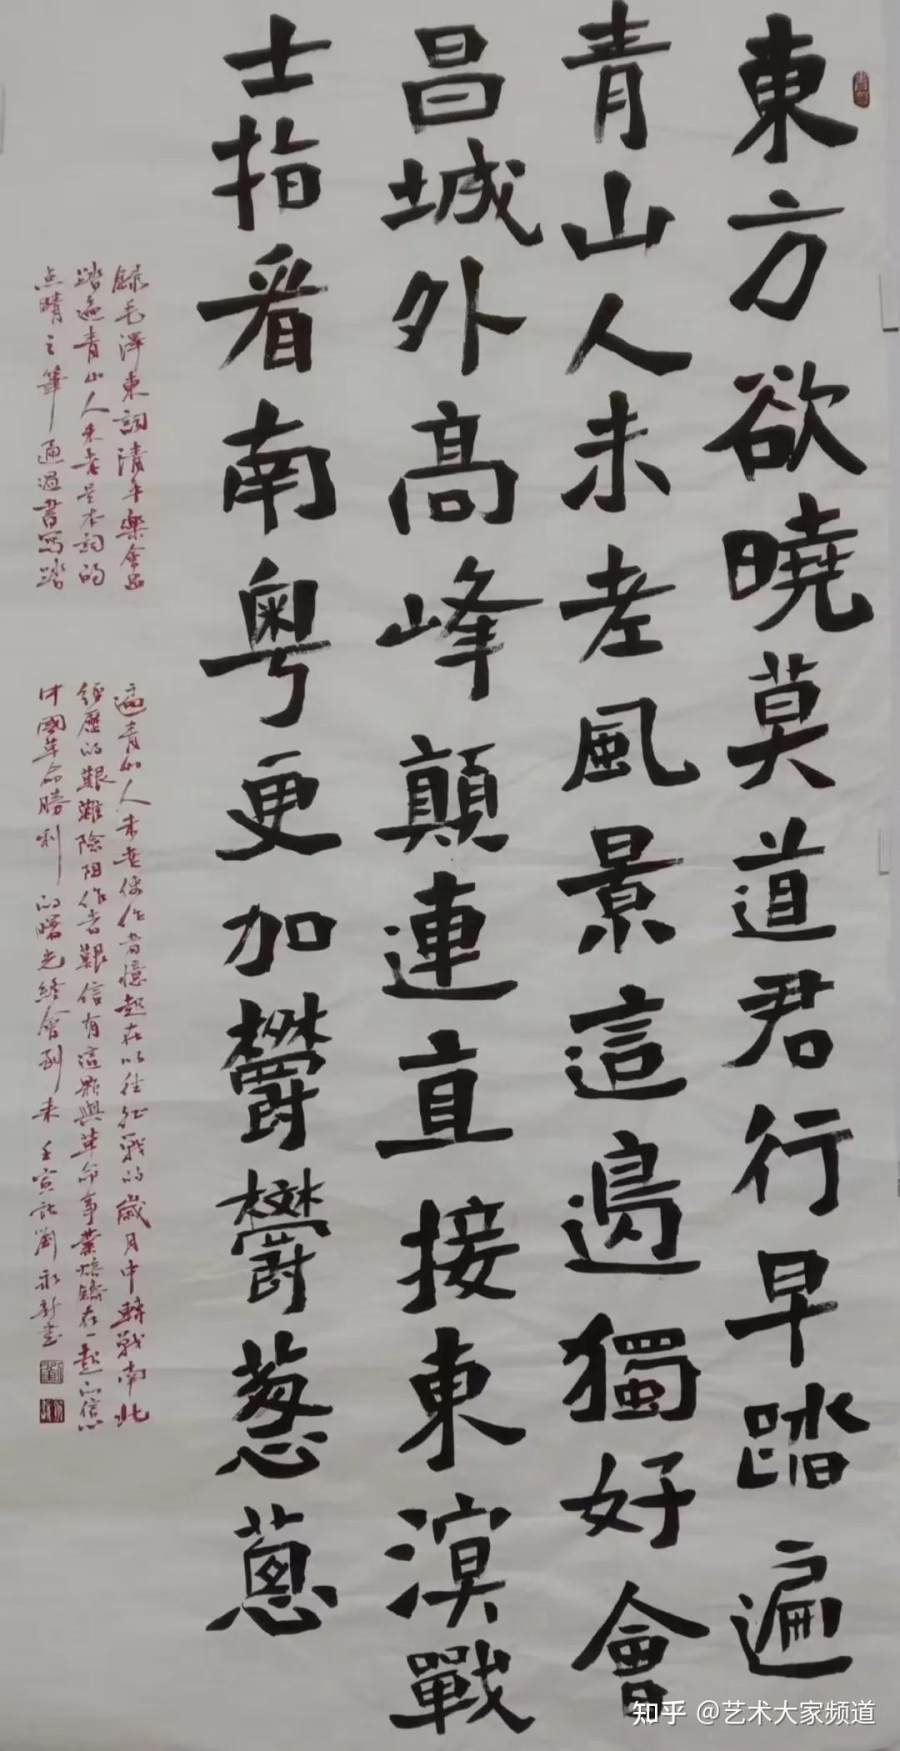 東方欲曉莫道君行早踏遍
青山人未老風景這邊獨好會
昌城外高峰顛連直接東溟戰
士指看南粵更加鬱鬱葱蔥
錄毛澤東詞清平樂會昌
踏遍青山人未老是本詞的
点睛之筆通過書寫踏
遍青山人未老使作者憶起在以往征戰的歲月中轉戰南北
經歷的艱難險阻作者堅信有這貌與革命事業熔鑄在一起的信
中國革命勝利的曙光終會到来壬寅記劉永新書
知乎 @艺术大家频道